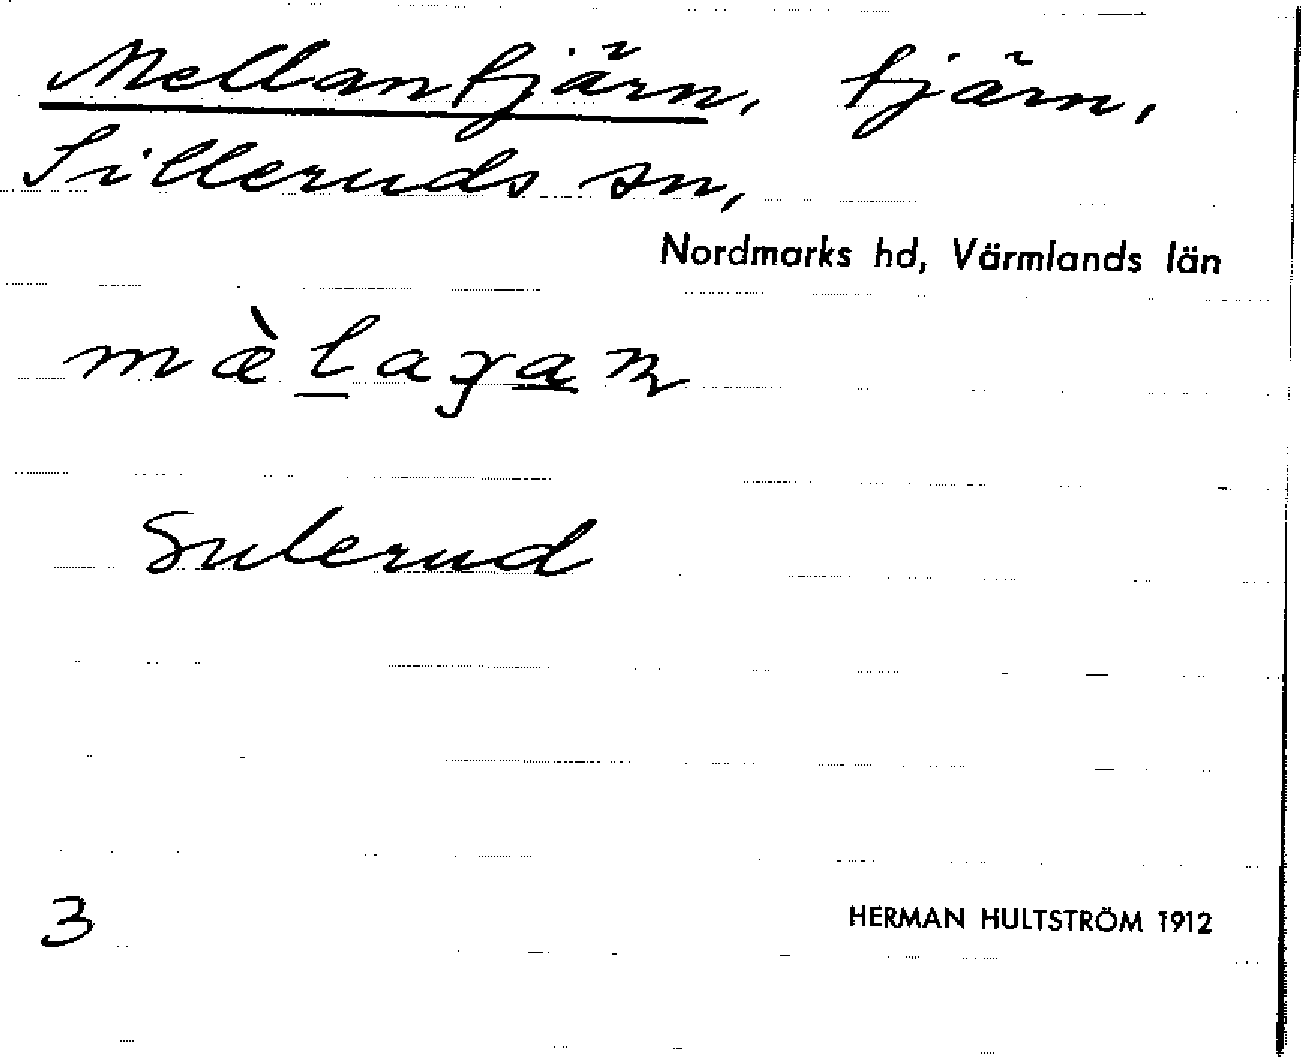 Mellantjärn, tjärn,
Silleruds sn,
Nordmarks hd, Värmlands län
Sulerud
3
HERMAN HULTSTRÖM 1912